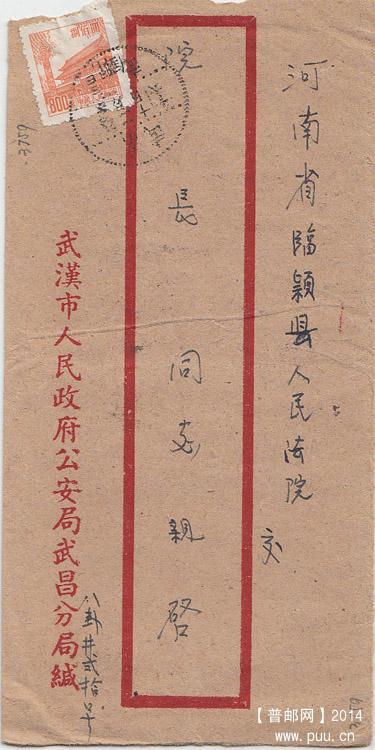 河南省臨颖县人民法院 交
院長同志親啓
武漢市人民政府公安局武昌分局緘
八卦井贰拾号
800
3759
【普邮网】2014
www.puu.cn